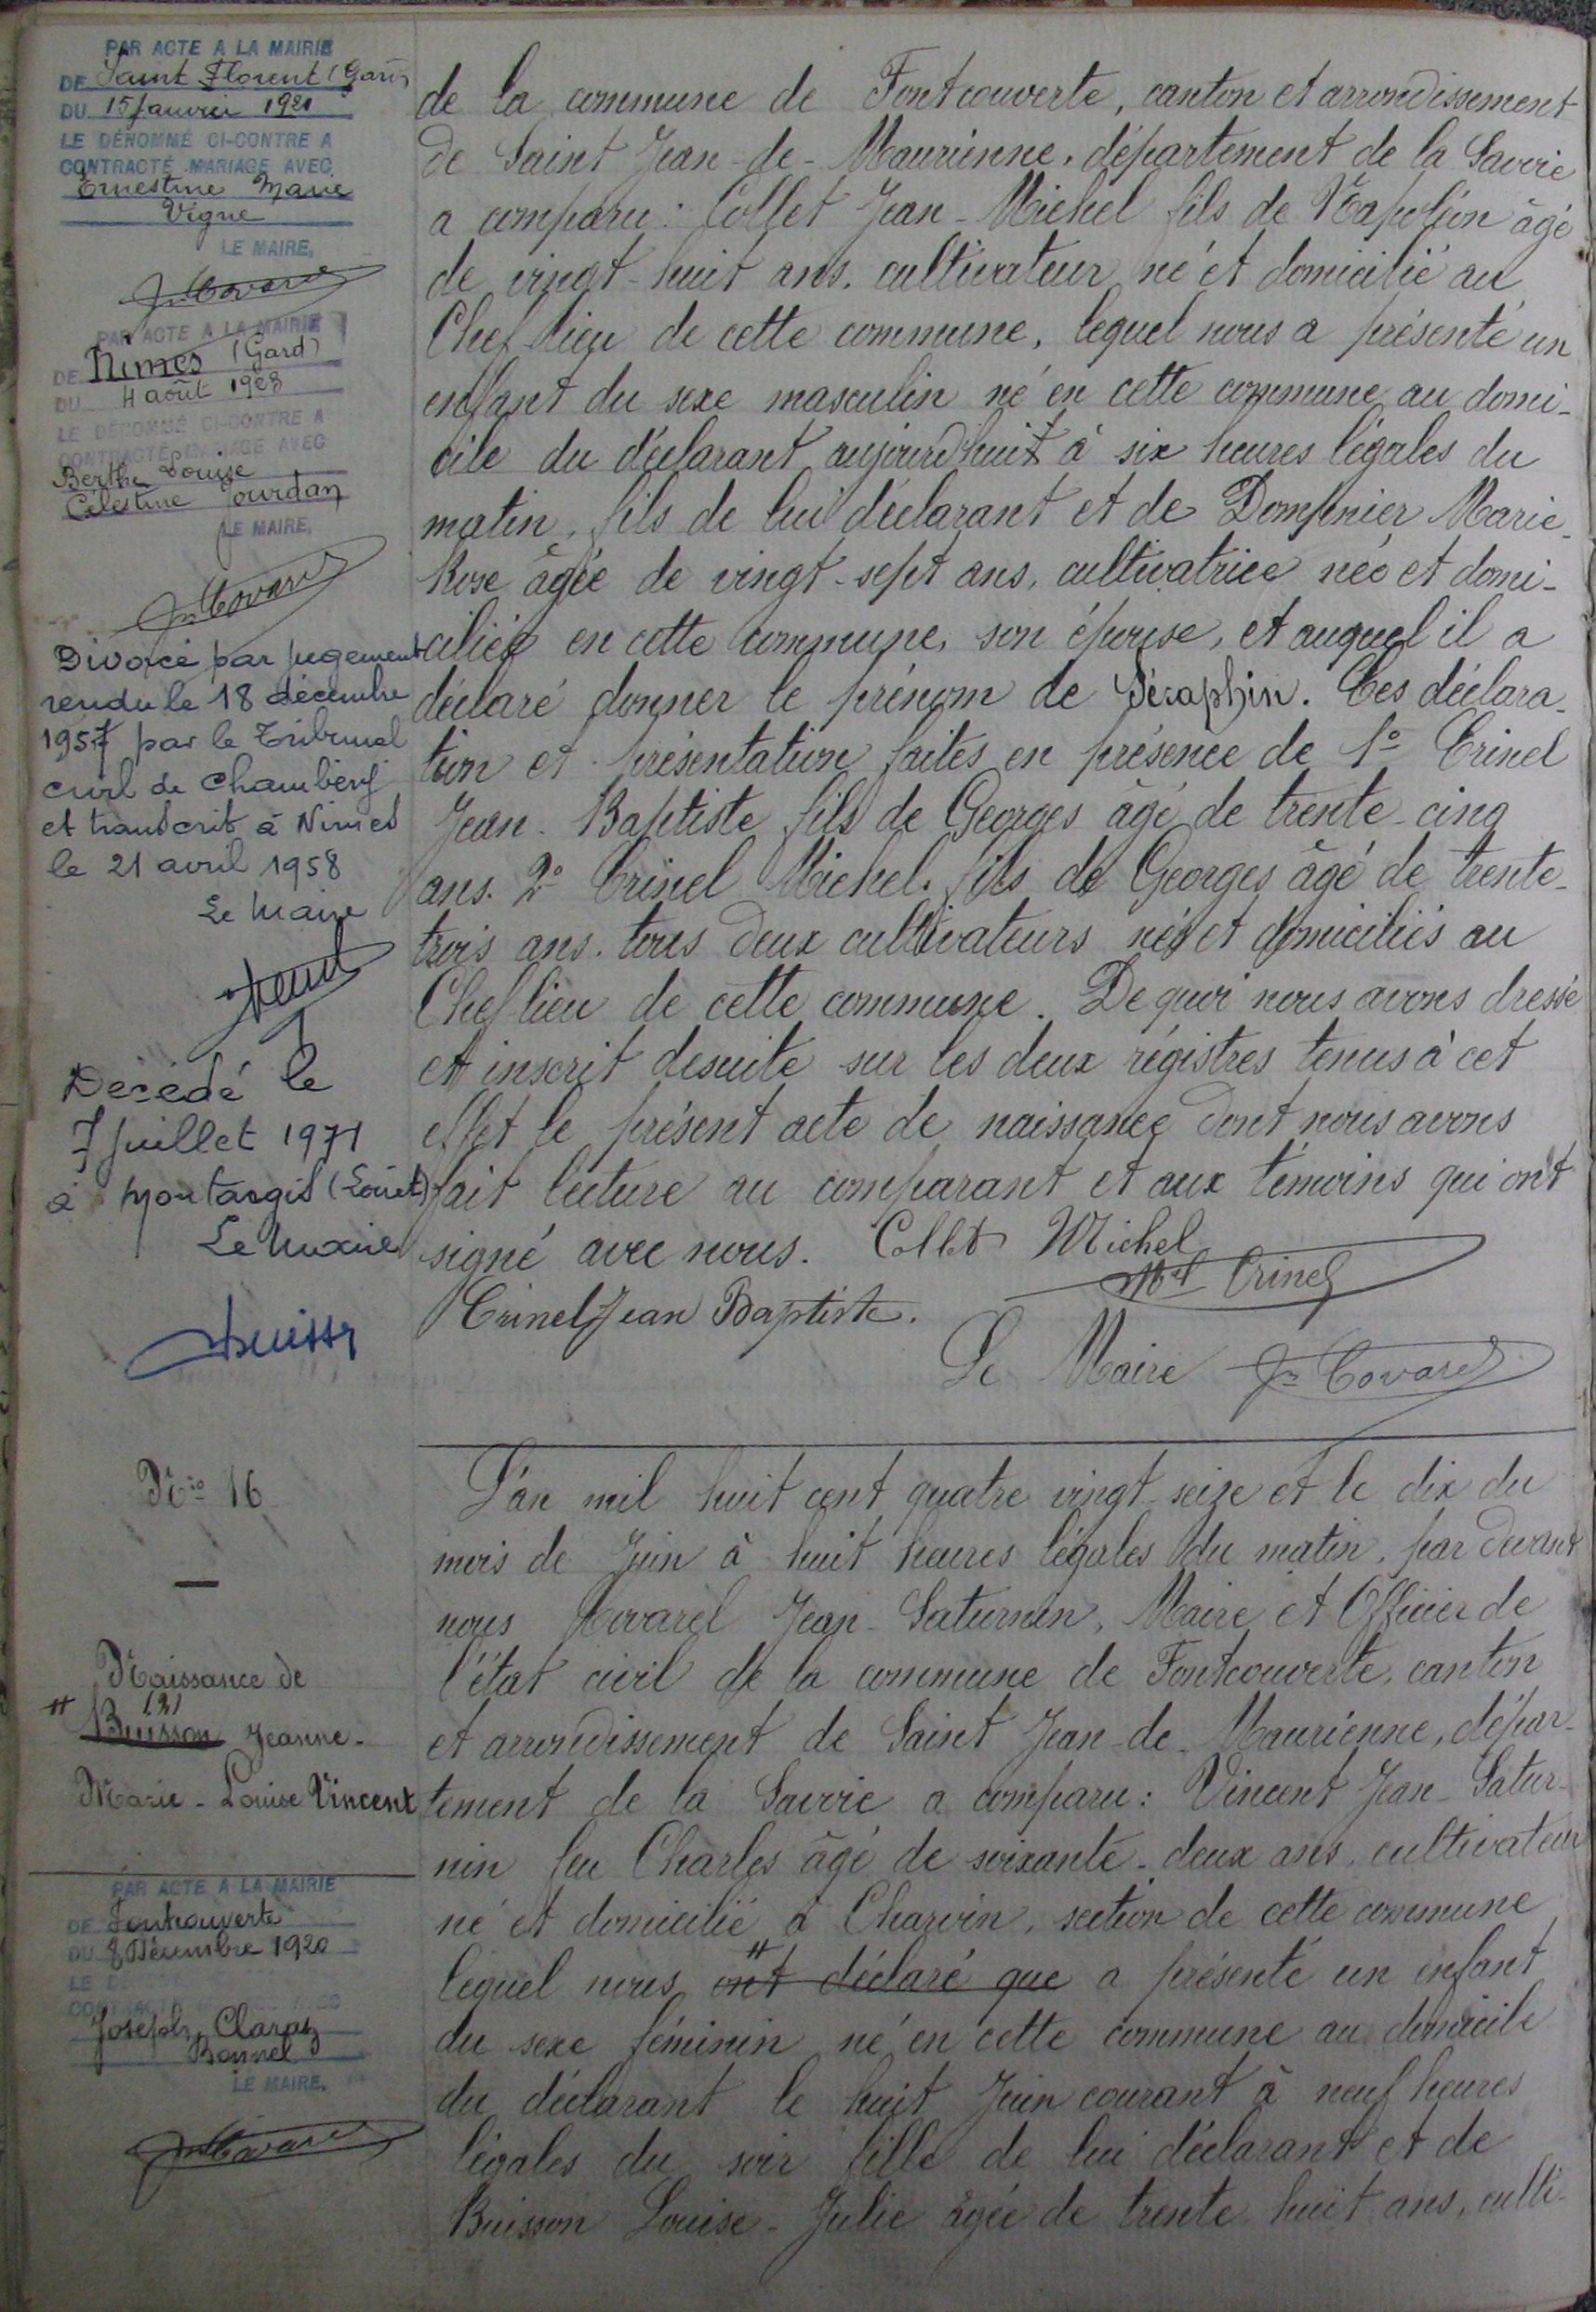 PAR ACTE A LA MAIRIE
DE Saint Florent (Gard)
DU 15 Janvier 1921
LE DÉNOMMÉ CI-CONTRE A
CONTRACTÉ MARIAGE AVEC
Ernestine Marie
Vigne
LE MAIRE,
PAR ACTE A LA MAIRIE
DE Nîmes (Gard)
DU 4 août 1928
LE DÉNOMMÉ CI-CONTRE A
CONTRACTÉ MARIAGE AVEC
Berthe Louise
Célestine Jourdan
LE MAIRE,
Divorcé par jugement
rendu le 18 décembre
1957 par le Tribunal
civil de Chambéry
et transcrit à Nimes
le 21 avril 1958
Le Maire
Décédé le
7 Juillet 1971
à Montargis (Loiret)
Le Maire
de la commune de Fontcouverte, canton et arrondissement
de Saint Jean-de-Maurienne, département de la Savoie
a comparu: Collet Jean-Michel fils de Napoléon âgé
de vingt-huit ans, cultivateur né et domicilié au
Chef-lieu de cette commune, lequel nous a présenté un
enfant du sexe masculin né en cette commune au domi-
cile du déclarant aujourd'huit à six heures légales du
matin, fils de lui déclarant et de Dompnier Marie-
Rose âgée de vingt-sept ans, cultivatrice née et domi-
ciliée en cette commune, son épouse, et auquel il a
déclaré donner le prénom de Séraphin. Ces déclara-
tion et présentation faites en présence de 1º Crinel
Jean-Baptiste fils de Georges âgé de trente-cinq
ans. 2º Crinel Michel. fils de Georges âgé de trente-
trois ans. tous deux cultivateurs nés et domiciliés au
Chef lieu de cette commune. De quoi nous avons dressé
et inscrit desuite sur les deux régistres tenus à cet
effet le présent acte de naissance dont nous avons
fait lecture au comparant et aux témoins qui ont
signé avec nous. Collet Michel
Mel Crinel
Crinel Jean Baptiste.
Le Maire Jn Covarel
Nro 16
Naissance de
# Buisson Jeanne-
Marie-Louise Vincent
PAR ACTE A LA MAIRIE
DE Fontcouverte
DU 8 Décembre 1920
LE
Joseph Claraz
Bonnel
LE MAIRE,
L'an mil huit cent quatre vingt-seize et le dix du
mois de Juin à huit heures légales du matin, par devant
nous Covarel Jean-Saturnin, Maire et Officier de
l'état civil de la commune de Fontcouverte, canton
et arrondissement de Saint Jean-de-Maurienne, dépar-
tement de la Savoie a comparu: Vincent Jean-Satur-
nin feu Charles âgé de soixante-deux ans, cultivateur
né et domicilié à Charvin, section de cette commune
lequel nous # ont déclaré que a présenté un enfant
du sexe féminin né en cette commune au domicile
du déclarant le huit Juin courant à neuf heures
légales du soir fille de lui déclarant et de
Buisson Louise-Julie âgée de trente huit ans, culti-